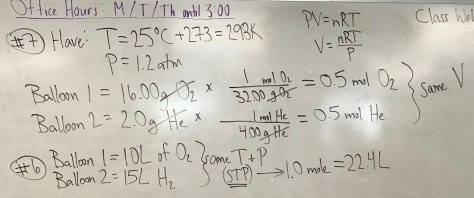 Office Hours: M/T/Th until 3:00
PV=nRT
Class Web
#7) Have: T=25°C+273=298K
V=nRT/P
P=1.2atm
Balloon 1 = 16.00g O₂ × 1 mol O₂/32.00g O₂ = 0.5 mol O₂
Balloon 2 = 2.0g He × 1 mol He/4.00g He = 0.5 mol He
} same V
#6) Balloon 1=10L of O₂
Balloon 2=15L H₂
} same T+P
(STP) → 1.0 mole=22.4L